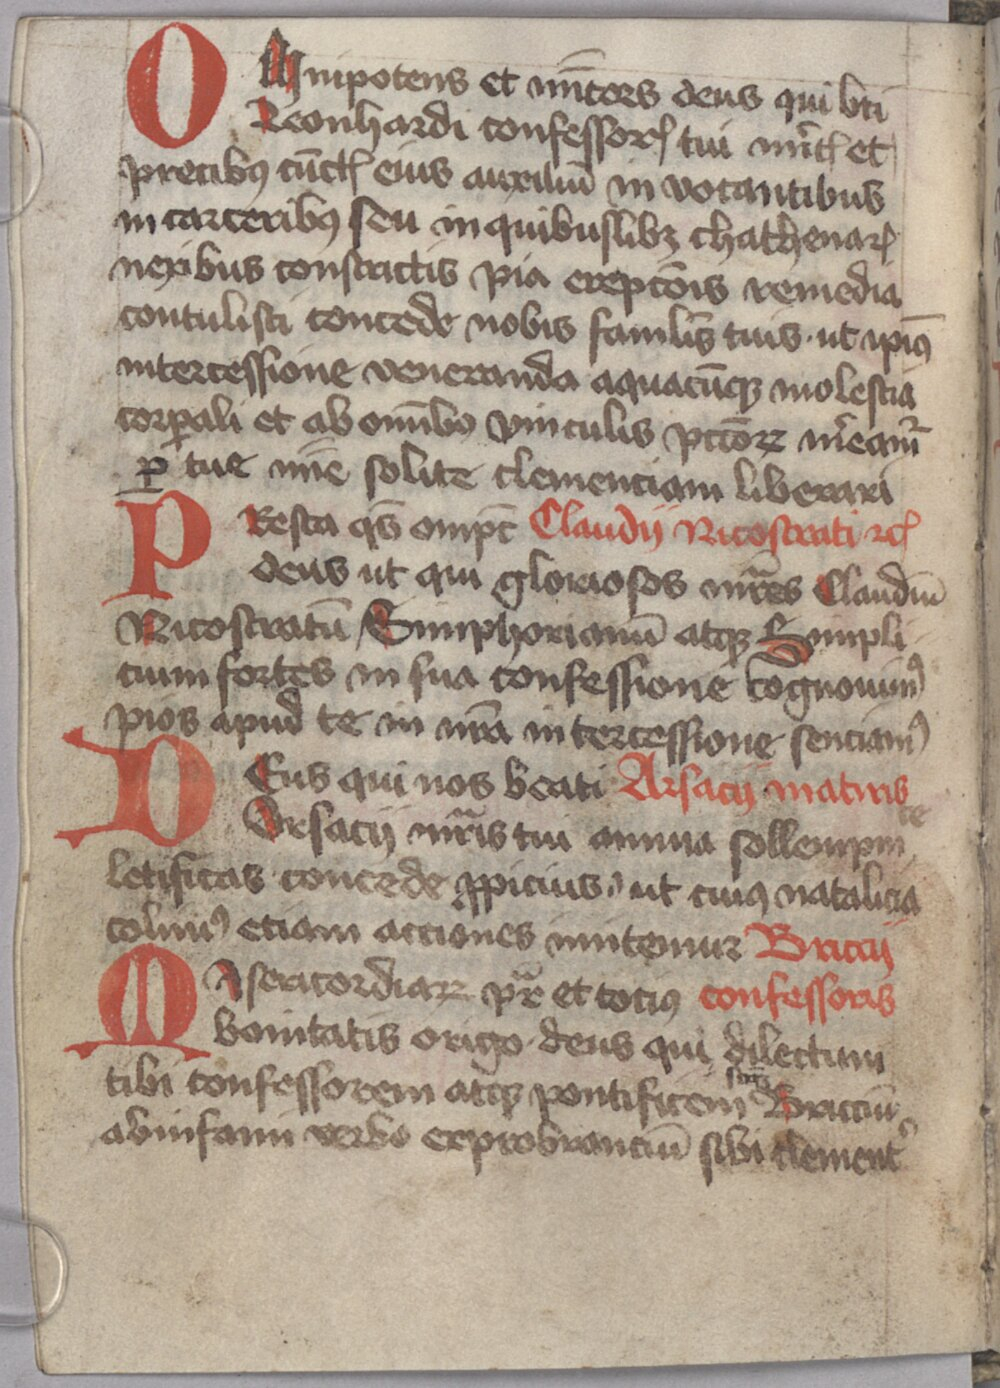 OMnipotens et mīcors deus qui bti
Leonhardi confessorꝭ tui mītꝭ et
precibꝯ cūctꝭ eius auxiliū in vocantibus
in carceribꝯ seu in quibuslibꝫ chathenarꝭ
nexibus constrictis pia erepcōis remedia
contulisti concede nobis famulis tuis · ut ipiꝯ
intercessione veneranda aquacūqꝫ molestia
corꝑali et ab omībꝯ vinculis pctōrꝝ mereamr̄
ꝑ tue mie solite clemenciam liberari
PResta qs̄ omp̄t Claudij Nicostrati ⁊cꝭ
deus ut qui gloriosos mr̄es Claudiū
Nicostratū Simphorianū atqꝫ Simpli
cium fortes in sua confessione cognouimꝯ
pios apud te in nr̄a intercessione senciamꝯ
DEus qui nos beati Arsacij matiris
Arsacij mr̄is tui annua sollempni te
letificas concede ꝓpicius · ut cuiꝯ natalicia
colimꝯ etiam acciones imitemur Briccij
MIsericordiarꝝ pr̄ et totiꝯ confessoris
bonitatis origo deus qui dilectum
tibi confessorem atqꝫ pontificem Bricciū
ab infami verbo exprobranciū sibi clement̉